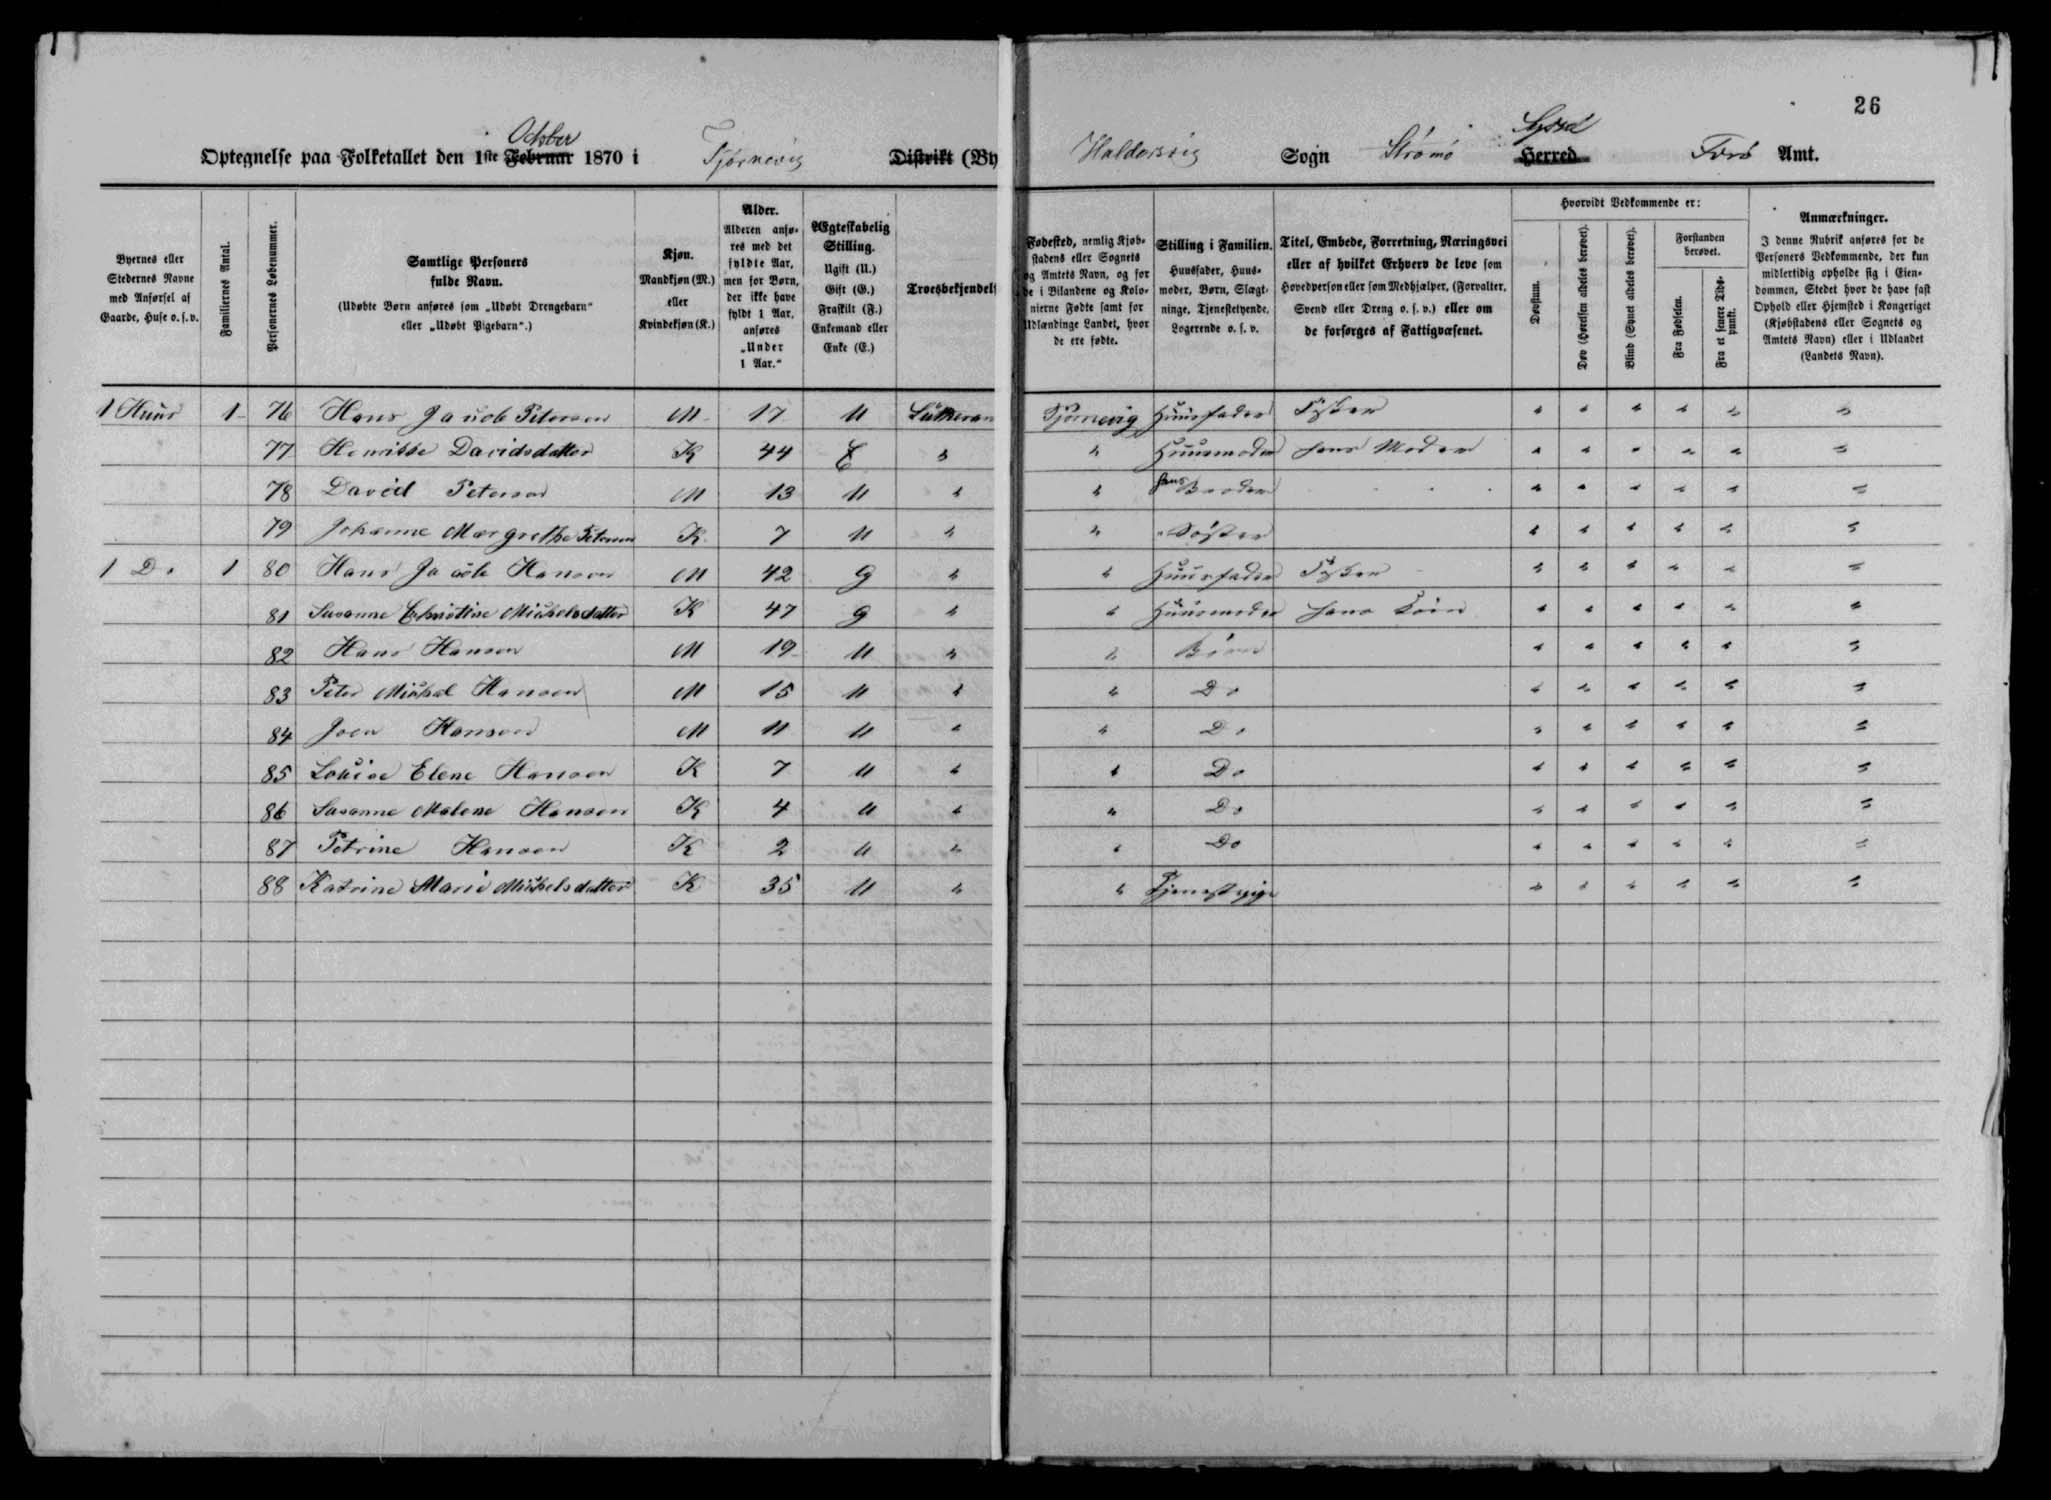 26
Optegnelse paa Folketallet den 1ste Februar October 1870 i Tjørnevig Distrikt (By Haldorsvig Sogn Strømø Herred Syssel Færø Amt.
Byernes eller Stedernes Navne med Anførsel af Gaarde, Huse o. s. v.
Familiernes Antal.
Personernes Løbenummer.
Samtlige Personers fulde Navn.
(Udøbte Børn anføres som „Udøbt Drengebarn“ eller „Udøbt Pigebarn“.)
Kjøn.
Mandkjøn (M.) eller Kvindekjøn (K.)
Alder.
Alderen anføres med det fyldte Aar, men for Børn, der ikke have fyldt 1 Aar, anføres „Under 1 Aar.“
Ægteskabelig Stilling.
Ugift (U.)
Gift (G.)
Fraskilt (F.)
Enkemand eller Enke (E.)
Troesbekjendel
Fødested, nemlig Kjøbstadens eller Sognets og Amtets Navn, og for de i Bilandene og Kolonierne Fødte samt for Udlændinge Landet, hvor de ere fødte.
Stilling i Familien.
Huusfader, Huusmoder, Børn, Slægtninge, Tjenestetyende, Logerende o. s. v.
Titel, Embede, Forretning, Næringsvei eller af hvilket Erhverv de leve som Hovedperson eller som Medhjælper, (Forvalter, Svend eller Dreng o. s. v.) eller om de forsørges af Fattigvæsenet.
Hvorvidt Vedkommende er:
Døvstum.
Døv (Hørelsen aldeles berøvet).
Blind (Synet aldeles berøvet).
Forstanden berøvet.
Fra Fødselen.
Fra et senere Tidspunkt.
Anmærkninger.
I denne Rubrik anføres for de Personers Vedkommende, der kun midlertidig opholde sig i Eiendommen, Stedet hvor de have fast Ophold eller Hjemsted i Kongeriget (Kjøbstadens eller Sognets og Amtets Navn) eller i Udlandet (Landets Navn).
1 Huus 1 76 Hans Jacob Petersen M 17 U Lutheran Tjørnevig Huusfader Fisker " " " " " "
77 Henrikke Davidsdatter K 44 E " " Huusmoder hans Moder " " " " " "
78 David Petersen M 13 U " " hans Broder " " " " " "
79 Johanne Margrethe Petersen K 7 U " " " Søster " " " " " "
1 Do 1 80 Hans Jacob Hansen M 42 G " " Huusfader Fisker " " " " " "
81 Susanne Christine Michelsdatter K 47 G " " Huusmoder hans Kone " " " " " "
82 Hans Hansen M 19 U " " Børn " " " " " "
83 Peter Michel Hansen M 15 U " " Do " " " " " "
84 Joen Hansen M 11 U " " Do " " " " " "
85 Louise Elene Hansen K 7 U " " Do " " " " " "
86 Susanne Malene Hansen K 4 U " " Do " " " " " "
87 Petrine Hansen K 2 U " " Do " " " " " "
88 Katrine Marie Michelsdatter K 35 U " " Tjenestpige " " " " " "